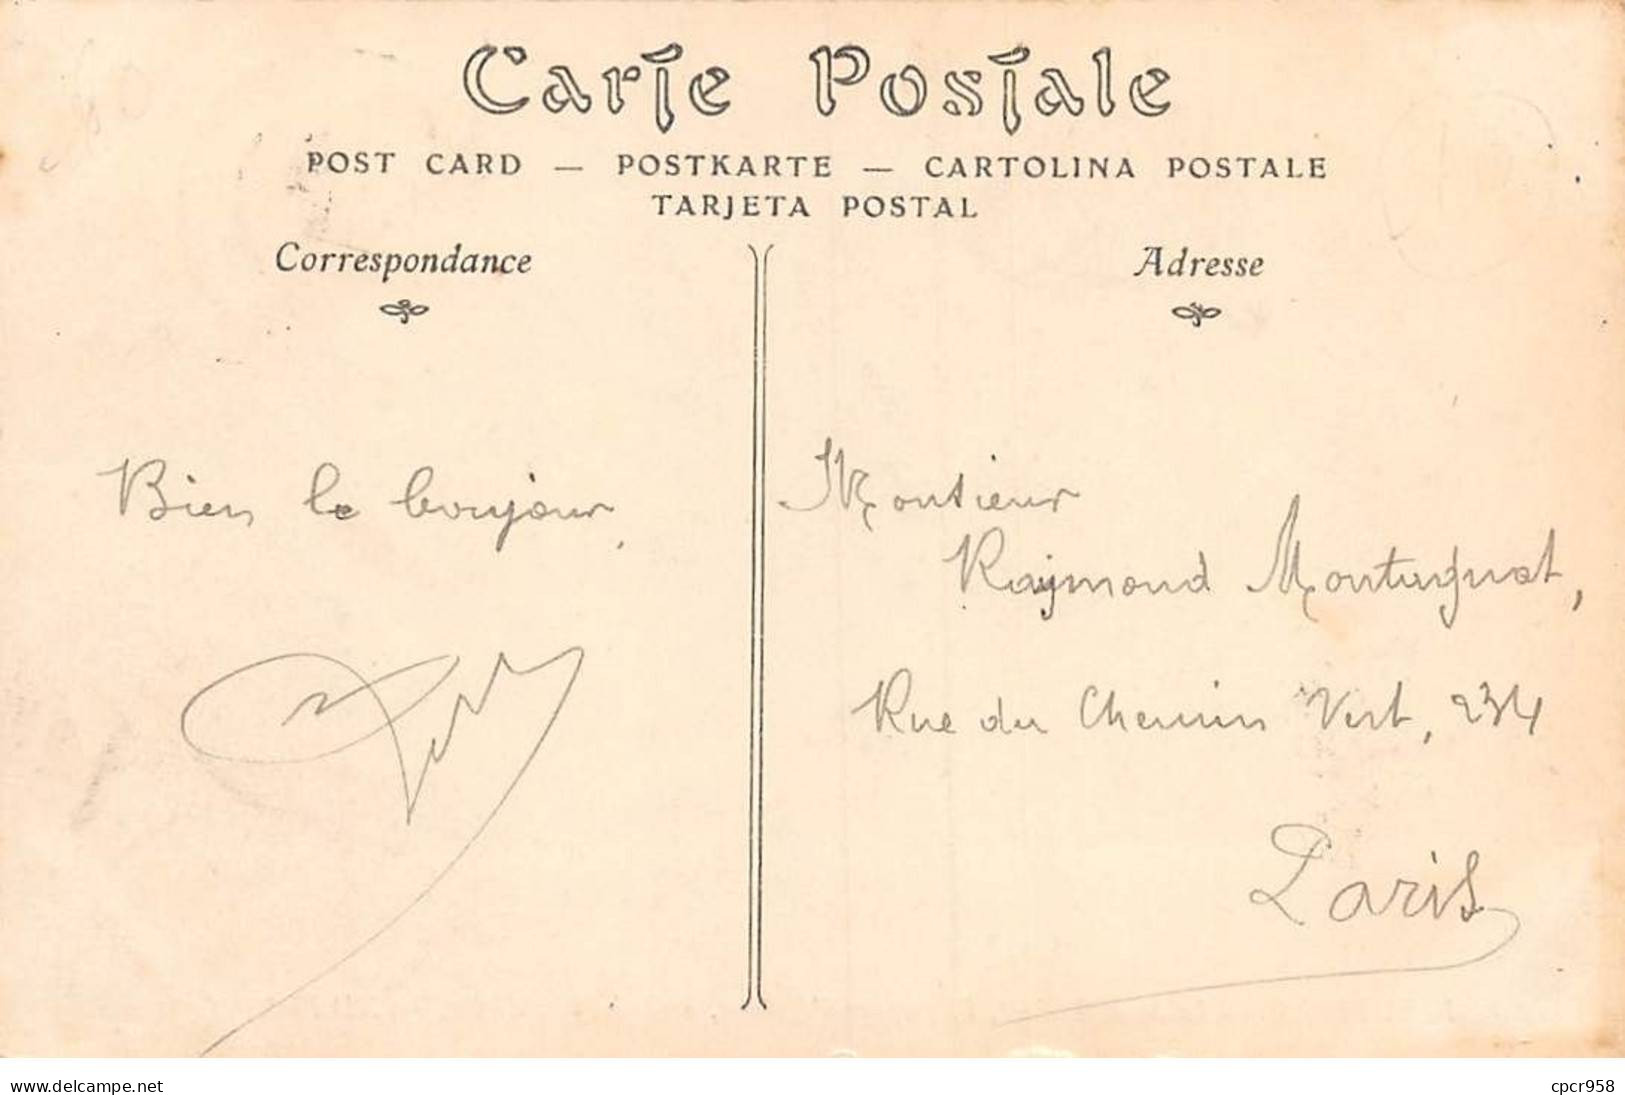 Carte Postale
POST CARD — POSTKARTE — CARTOLINA POSTALE
TARJETA POSTAL
Correspondance
Adresse
Bien le bonjour,
Monsieur
Raymond
Rue du Chemin Vert, 234
Paris
www.delcampe.net
cpcr958